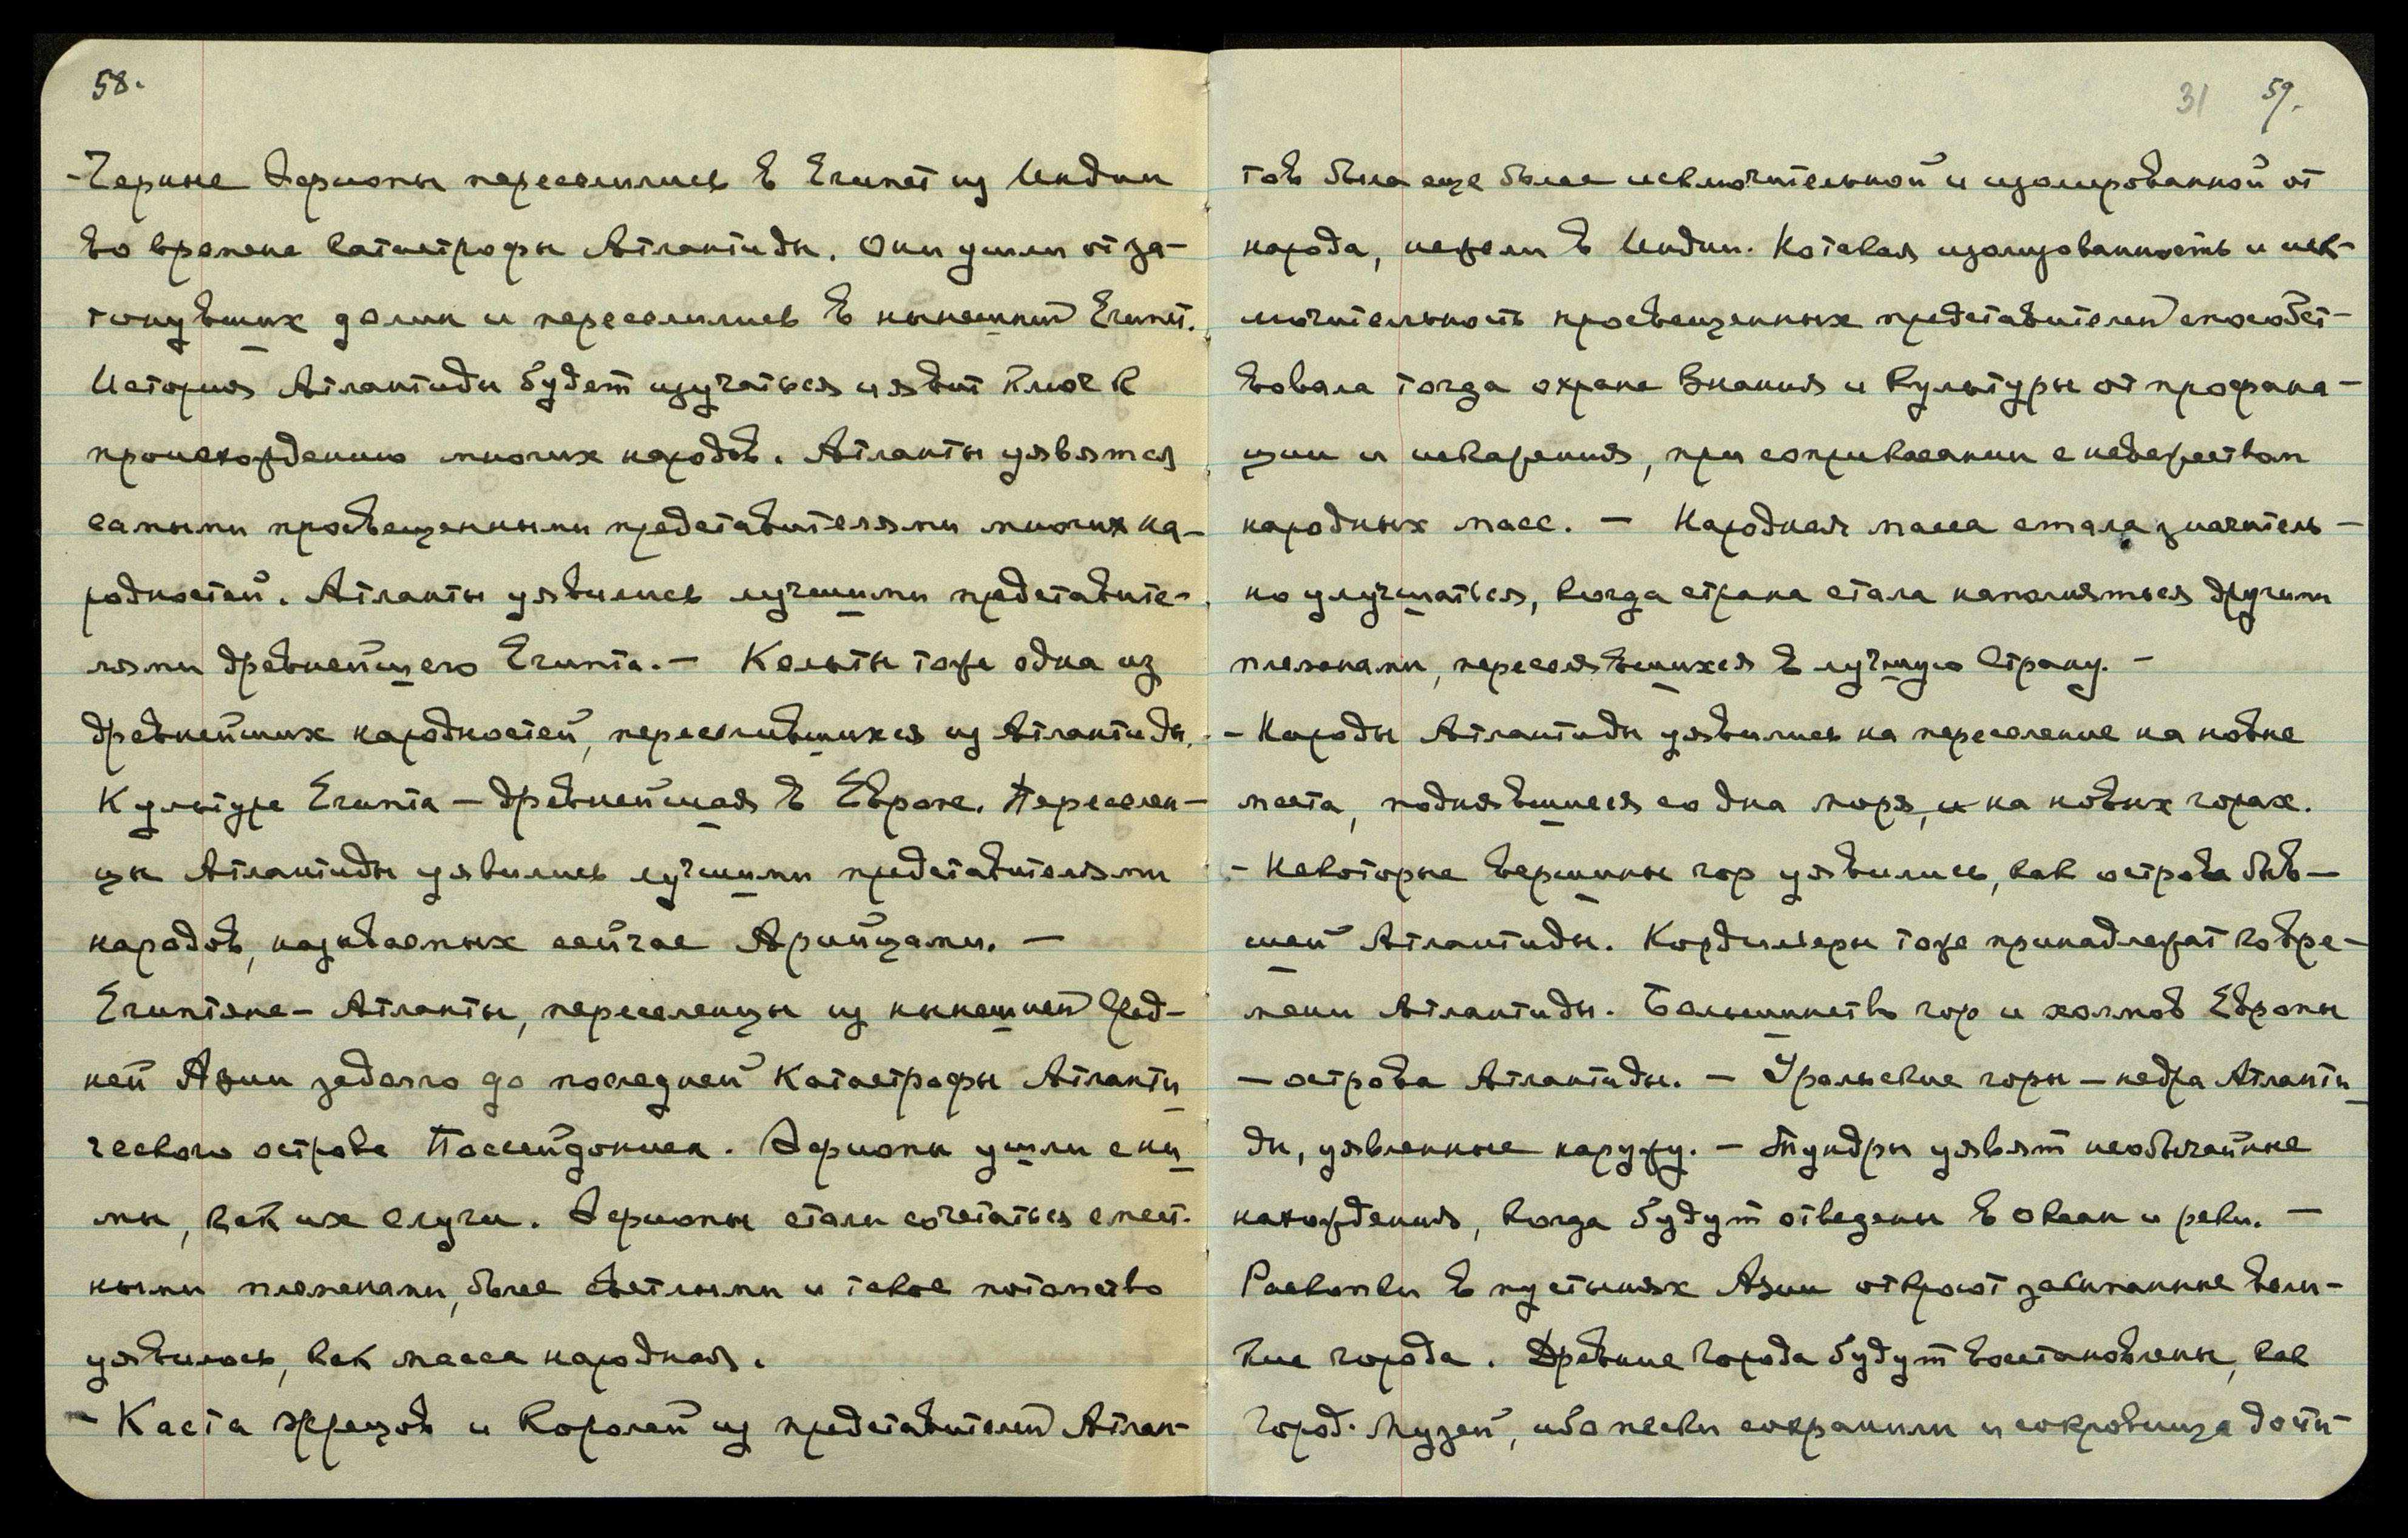 58.
- Черные Дермоны переселились в Египет из Индии
во времене катастрофы Атлантиды. Они ушли от за-
тонувших долин и переселились в нынешний Египет.
История Атлантиды будет изучаться и явит ключ к
происхождению многих народов. Атланты уявятся
самыми просвещенными представителями многих на-
родностей. Атланты уявились лучшими представите-
лями древнейшего Египта. - Кельты тоже одна из
древнейших народностей, переселившихся из Атлантиды.
Культура Египта - древнейшая в Европе. Переселен-
цы Атлантиды уявились лучшими представителями
народов, называемых сейчас Арийцами. -
Египтяне - Атланты, переселенцы из нынешней Сред-
ней Азии задолго до последней Катастрофы Атланти
ческого острова Поссейдониса. ушли с ни
ми, как их слуги. стали сочетаться с мест-
ными племенами, более светлыми и такое потомство
уявилось, как масса народная.
- Каста Жрецов и Королей из представителей Атлан-
31 59.
тов была еще более исключительной и изолированной от
народа, нежели в Индии. Кастовая изолированность и иск-
лючительность просвещенных представителей способст-
вовала тогда охране Знания и Культуры от профана-
ции и искажения, при соприкасании с невежеством
народных масс. - Народная масса стала значитель-
но улучшаться, когда страна стала наполняться другими
племенами, переселявшихся в лучшую Страну. -
- Народы Атлантиды уявились на переселение на новые
места, поднявшиеся со дна моря, и на новых горах.
- Некоторые вершины гор уявились, как острова быв-
шей Атлантиды. Кордильеры тоже принадлежат ко вре-
мени Атлантиды. Большинство гор и холмов Европы
- острова Атлантиды. - Уральские горы - недра Атланти
ды, уявленные наружу. - Тундры уявят необычайные
нахождения, когда будут отведены в океан и реки. -
Раскопки в пустынях Азии откроют засыпанные вели-
кие города. Древние города будут восстановлены, как
Город-Музей, ибо пески сохранили и сокровища дости-